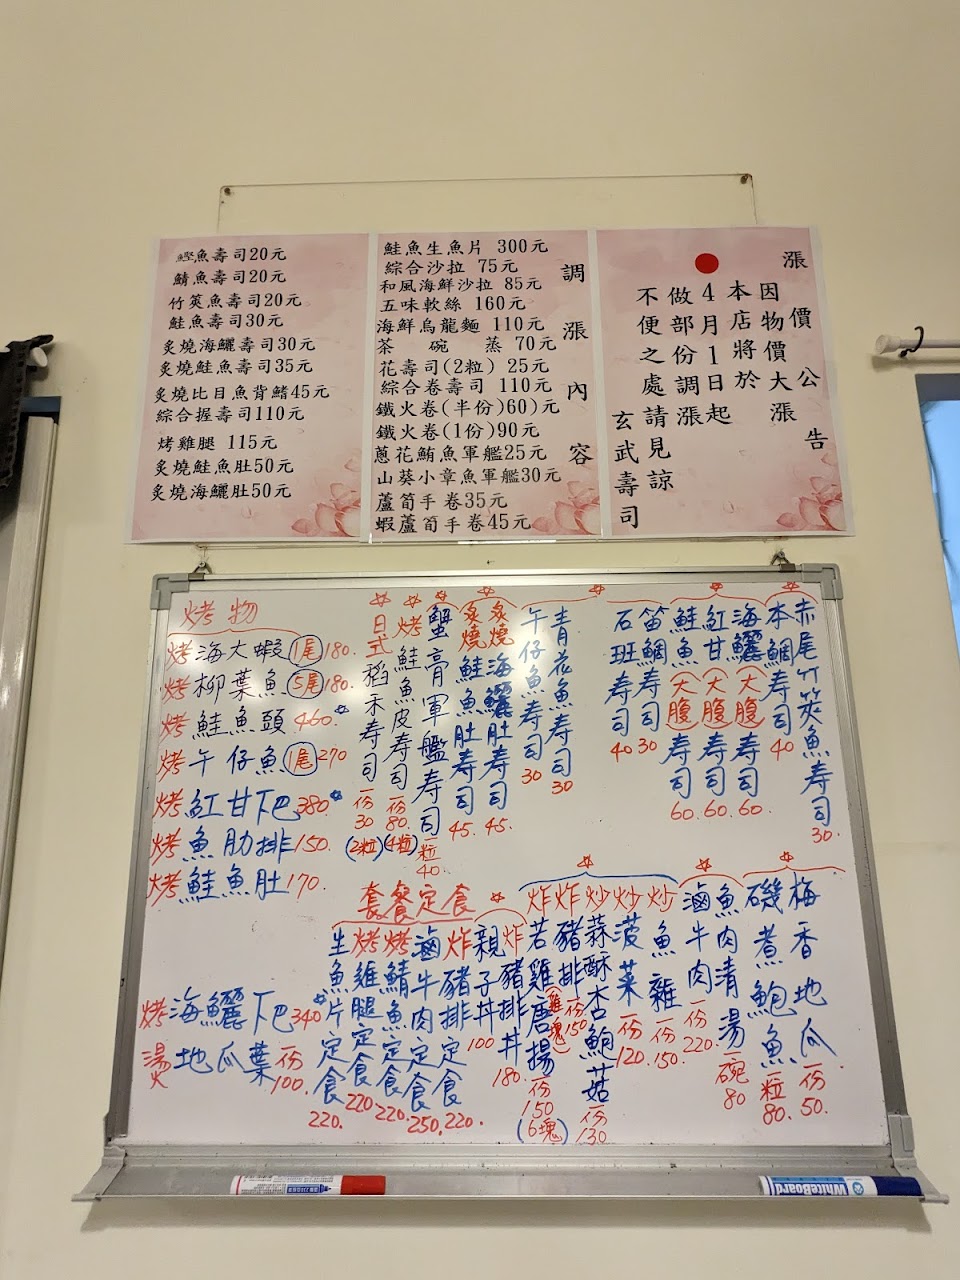 鰹魚壽司20元
鯖魚壽司20元
竹筴魚壽司20元
鮭魚壽司30元
炙燒海鱺壽司30元
炙燒鮭魚壽司35元
炙燒比目魚背鰭45元
綜合握壽司110元
烤雞腿 115元
炙燒鮭魚肚50元
炙燒海鱺肚50元
鮭魚生魚片 300元
綜合沙拉 75元
和風海鮮沙拉 85元
五味軟絲 160元
海鮮烏龍麵 110元
茶 碗 蒸 70元
花壽司(2粒) 25元
綜合卷壽司 110元
鐵火卷(半份)60)元
鐵火卷(1份)90元
蔥花鮪魚軍艦25元
山葵小章魚軍艦30元
蘆筍手卷35元
蝦蘆筍手卷45元
調漲內容
漲價公告
因物價大漲
本店將於
4月1日起
做部份調漲
不便之處請見諒
玄武壽司
烤物
烤海大蝦(1尾)180.
烤柳葉魚(5尾)180.
烤鮭魚頭460
烤午仔魚(1尾)270
烤紅甘下巴380
烤魚肋排150.
烤鮭魚肚170.
烤海鱺下巴340
燙地瓜葉一份100.
赤尾竹筴魚寿司30.
本鯛寿司40
海鱺(大腹)寿司60.
紅甘(大腹)寿司60.
鮭魚(大腹)寿司60.
笛鯛寿司30
石班寿司40
青花魚寿司30
午仔魚寿司30
炙燒海鱺肚寿司45.
炙燒鮭魚肚寿司45.
蟹膏軍艦寿司一粒40
烤鮭魚皮寿司一份80.(4粒)
日式稻禾寿司一份30(2粒)
梅香地瓜一份50.
磯煮鮑魚一粒80.
魚肉清湯一碗80
滷牛肉一份220.
炒魚雜一份150.
炒菠菜一份120.
炒蒜酥杏鮑菇一份130
炸豬排一份150
炸若雞唐揚(雞塊)一份150(6塊)
炸豬排丼180.
親子丼100
套餐定食
炸豬排定食220.
滷牛肉定食250.
烤鯖魚定食220.
烤雞腿定食220
生魚片定食220.
WhiteBoard